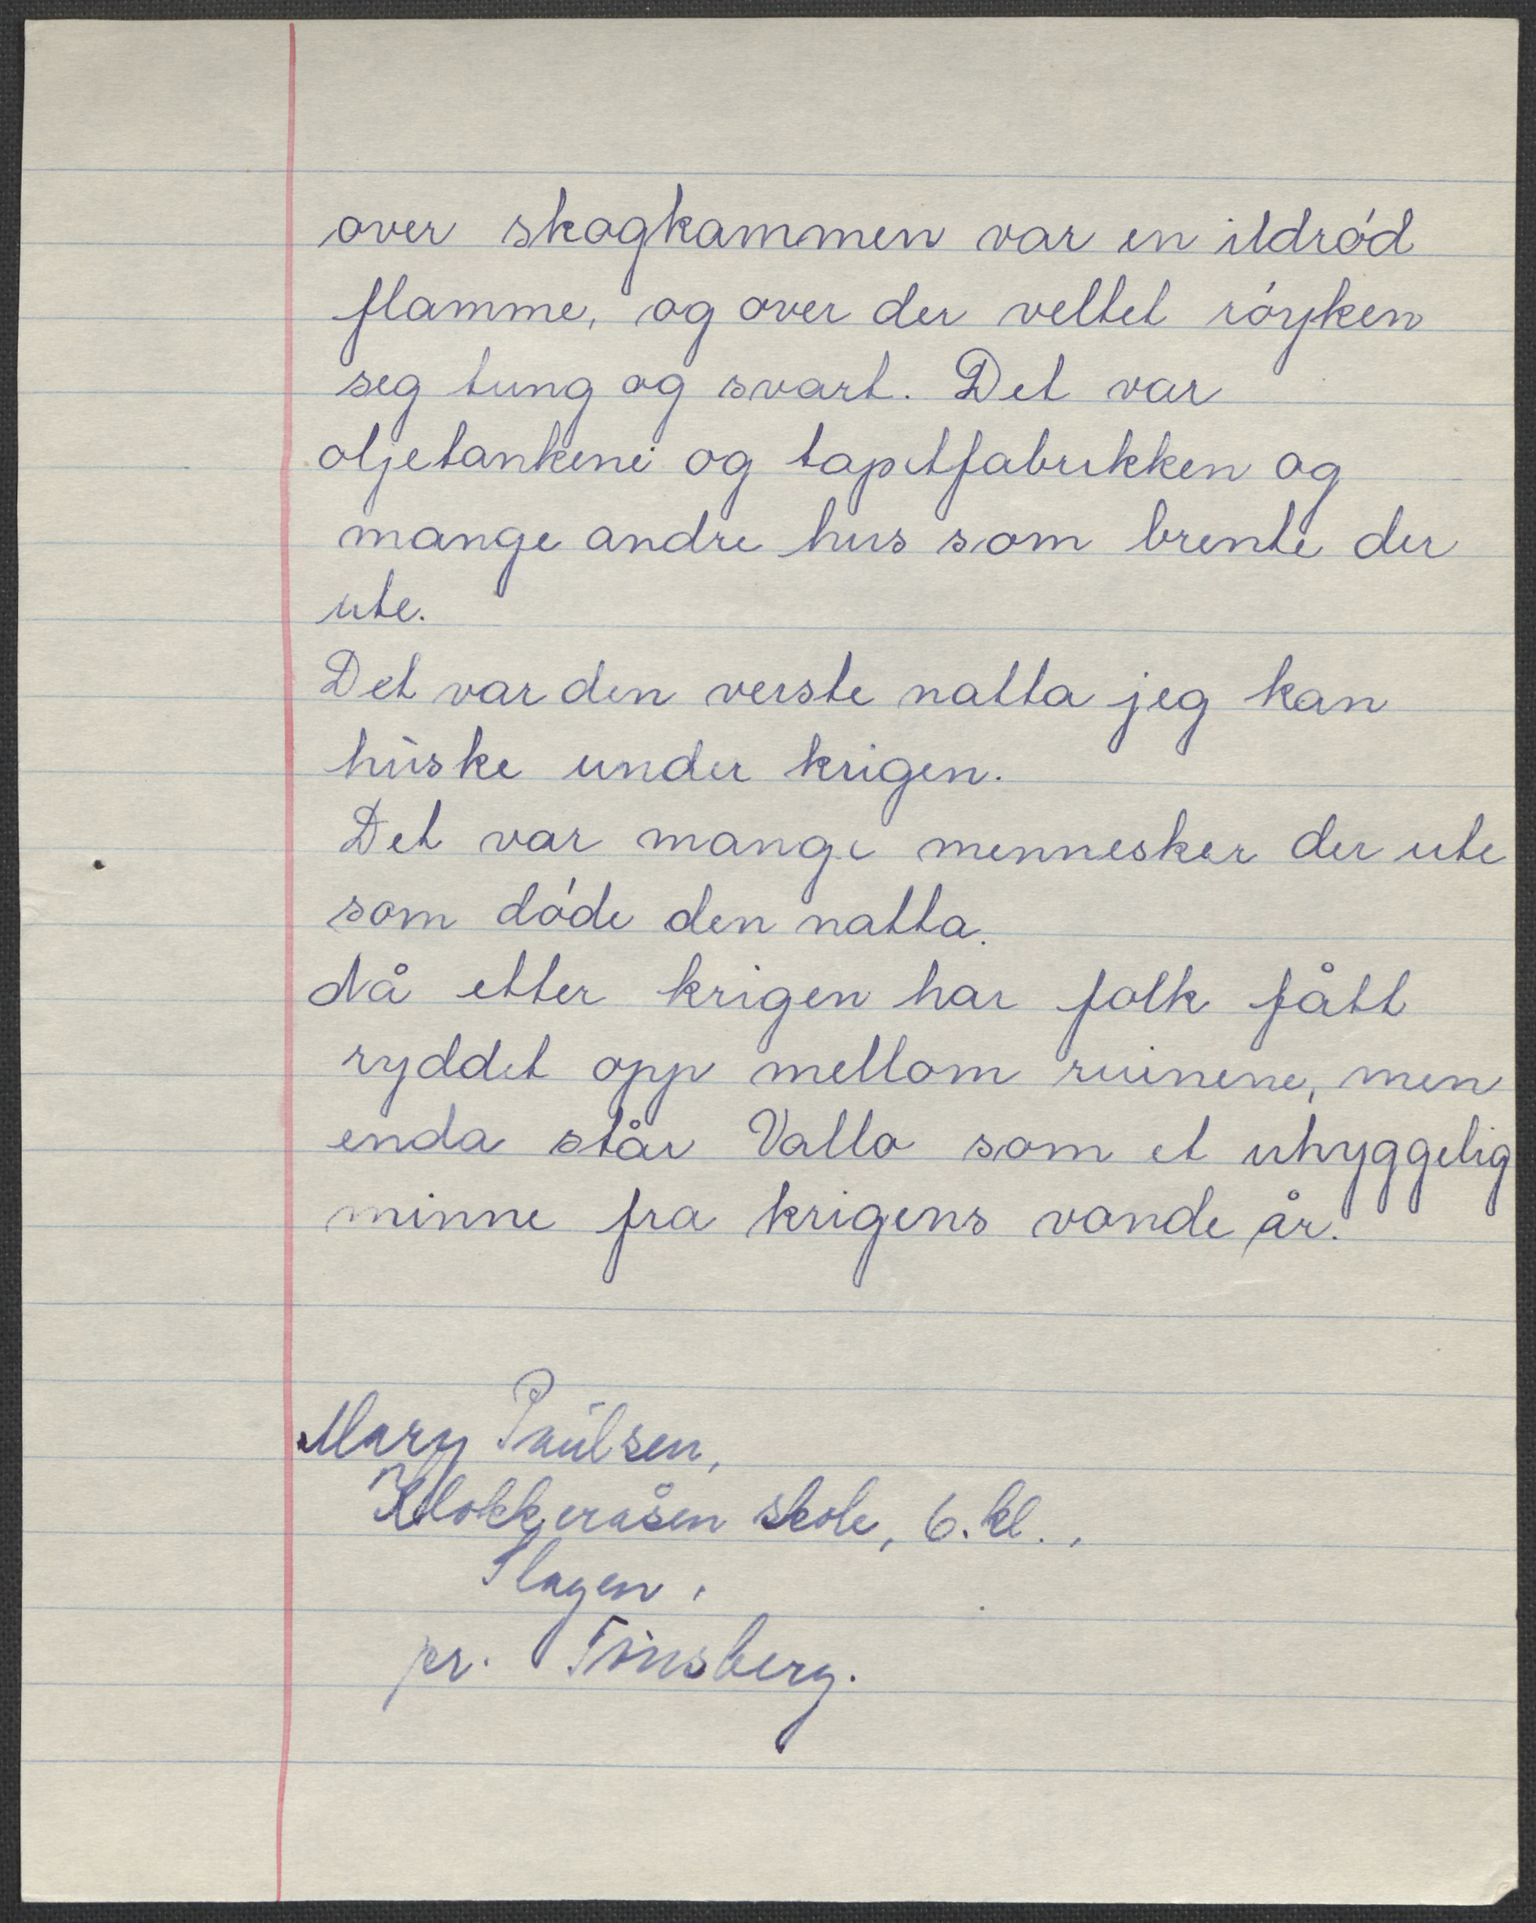 over skogkammen var en ildrød
flamme, og over der veltet røyken
seg tung og svart. Det var
oljetankene og tapetfabrikken og
mange andre hus som brente der
ute.
Det var den verste natta jeg kan
huske under krigen.
Det var mange mennesker der ute
som døde den natta.
Nå etter krigen har folk fått
ryddet opp mellom ruinene, men
enda står Vallø som et uhyggelig
minne fra krigens vonde år.
Mary Paulsen,
Klokkeråsen skole, 6. kl.,
Slagen,
pr. Tønsberg.